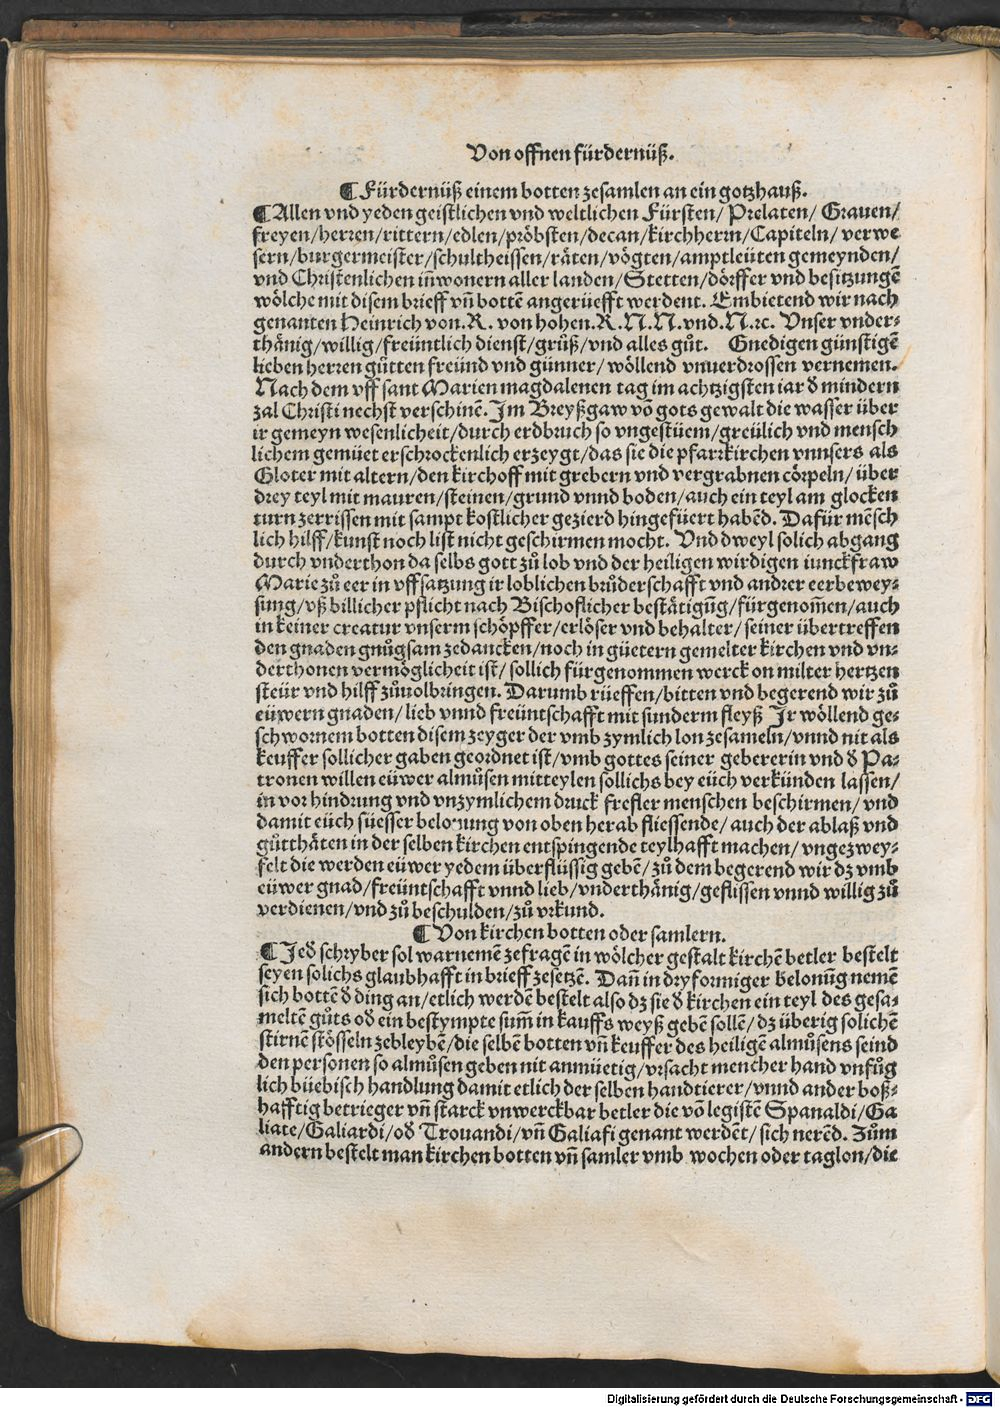 Von offnen fürdernüß.
¶ Fürdernüß einem botten zesamlen an ein gotzhauß.
¶ Allen vnd yeden geistlichen vnd weltlichen Fürsten/ Prelaten/ Grauen/
freyen/herren/rittern/edlen/pröbsten/decan/kirchherrn/Capiteln/ verwe
sern/burgermeister/schultheissen/räten/vögten/amptleüten gemeynden/
vnd Christenlichen in̄wonern aller landen/Stetten/dörffer vnd besitzungē
wölche mit disem brieff vn̄ bottē angerüefft werdent. Embietend wir nach
genanten Heinrich von.R. von hohen.R.N.N.vnd.N.ꝛc. Vnser vnder⸗
thänig/willig/freüntlich dienst/grůß/vnd alles gůt. Gnedigen günstigē
lieben herren gůtten freünd vnd günner/ wöllend vnuerdrossen vernemen.
Nach dem vff sant Marien magdalenen tag im achtzigsten iar d̕ mindern
zal Christi nechst verschinē. Im Breyßgaw vō gots gewalt die wasser über
ir gemeyn wesenlicheit/durch erdbruch so vngestüem/greülich vnd mensch
lichem gemüet erschrockenlich erzeygt/das sie die pfarrkirchen vnnsers als
Gloter mit altern/den kirchoff mit grebern vnd vergrabnen cörpeln/ über
drey teyl mit mauren/steinen/grund vnnd boden/auch ein teyl am glocken
turn zerrissen mit sampt kostlicher gezierd hingefüert habēd. Dafür mēsch
lich hilff/kunst noch list nicht geschirmen mocht. Vnd dweyl solich abgang
durch vnderthon da selbs gott zů lob vnd der heiligen wirdigen iunckfraw
Marie zů eer in vffsatzung ir loblichen brůderschafft vnd andrer eerbewey⸗
sung/vß billicher pflicht nach Bischoflicher bestätigūg/fürgenom̄en/auch
in keiner creatur vnserm schöpffer/erlöser vnd behalter/seiner übertreffen
den gnaden gnůgsam zedancken/noch in güetern gemelter kirchen vnd vn⸗
derthonen vermöglicheit ist/ sollich fürgenommen werck on milter hertzen
steür vnd hilff zůuolbringen. Darumb rüeffen/bitten vnd begerend wir zů
eüwern gnaden/lieb vnnd freüntschafft mit sunderm fleyß Ir wöllend ge⸗
schwornem botten disem zeyger der vmb zymlich lon zesameln/vnnd nit als
keuffer sollicher gaben geordnet ist/vmb gottes seiner gebererin vnd d̕ Pa⸗
tronen willen eüwer almůsen mitteylen sollichs bey eüch verkünden lassen/
in vor hindrung vnd vnzymlichem druck frefler menschen beschirmen/ vnd
damit eüch süesser belonung von oben herab fliessende/ auch der ablaß vnd
gůtthäten in der selben kirchen entspingende teylhafft machen/ vngezwey⸗
felt die werden eüwer yedem überflüssig gebē/zů dem begerend wir dz vmb
eüwer gnad/freüntschafft vnnd lieb/vnderthänig/geflissen vnnd willig zů
verdienen/vnd zů beschulden/zů vrkund.
¶ Von kirchen botten oder samlern.
¶ Jed̕ schryber sol warnemē zefragē in wölcher gestalt kirchē betler bestelt
seyen solichs glaubhafft in brieff zesetzē. Dan̄ in dryformiger belonūg nemē
sich bottē d̕ ding an/etlich werdē bestelt also dz sie d̕ kirchen ein teyl des gesa⸗
meltē gůts od̕ ein bestympte sum̄ in kauffs weyß gebē sollē/dz überig solichē
stirnē stösseln zebleybē/die selbē botten vn̄ keuffer des heiligē almůsens seind
den personen so almůsen geben nit anmüetig/vrsacht mencher hand vnfůg
lich büebisch handlung damit etlich der selben handtierer/vnnd ander boß⸗
hafftig betrieger vn̄ starck vnwerckbar betler die vō legistē Spanaldi/Ga
liate/Galiardi/od̕ Trouandi/vn̄ Galiafi genant werdēt/sich nerēd. Zům
andern bestelt man kirchen botten vn̄ samler vmb wochen oder taglon/die
Digitalisierung gefördert durch die Deutsche Forschungsgemeinschaft - DFG